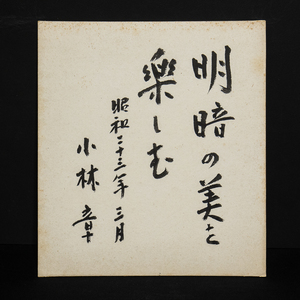 明暗の美を
楽しむ
昭和二十三年三月
小林章